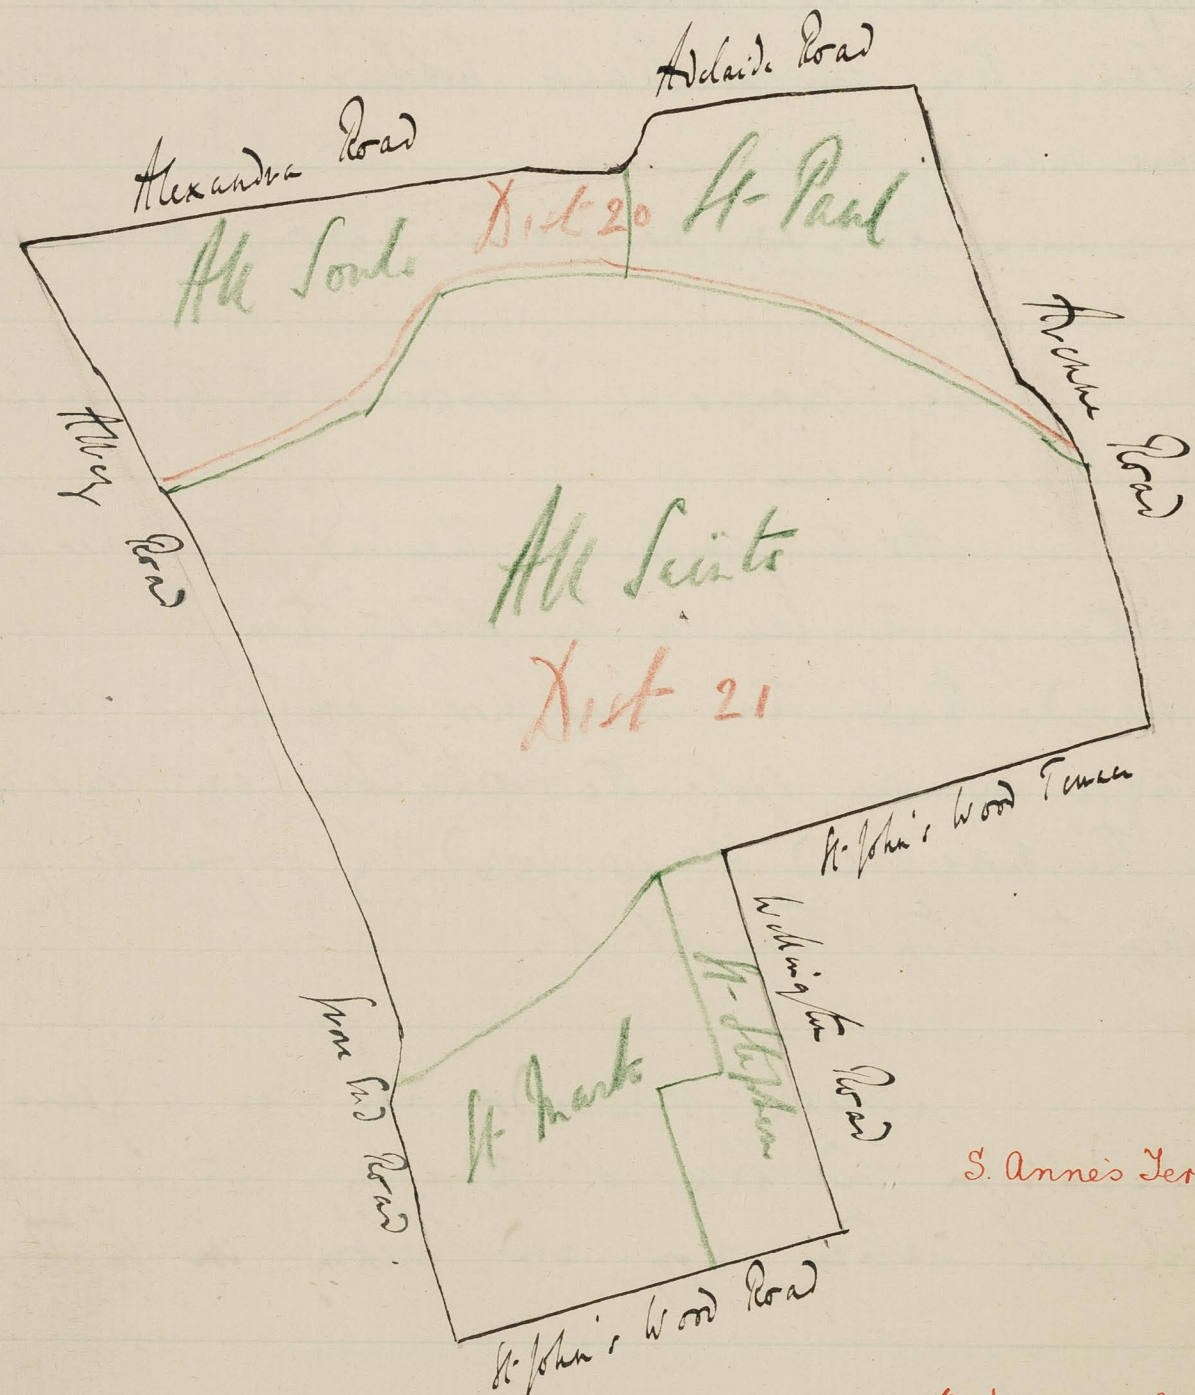 Adelaide Road
Alexandra Road
Dist 20
St Paul
All Souls
Avenue Road
Abbey Road
All Saints
Dist 21
St John's Wood Terrace
Wellington Road
St Stephen
Grove End Road.
St Marks
S. Anne's Ter
St John's Wood Road